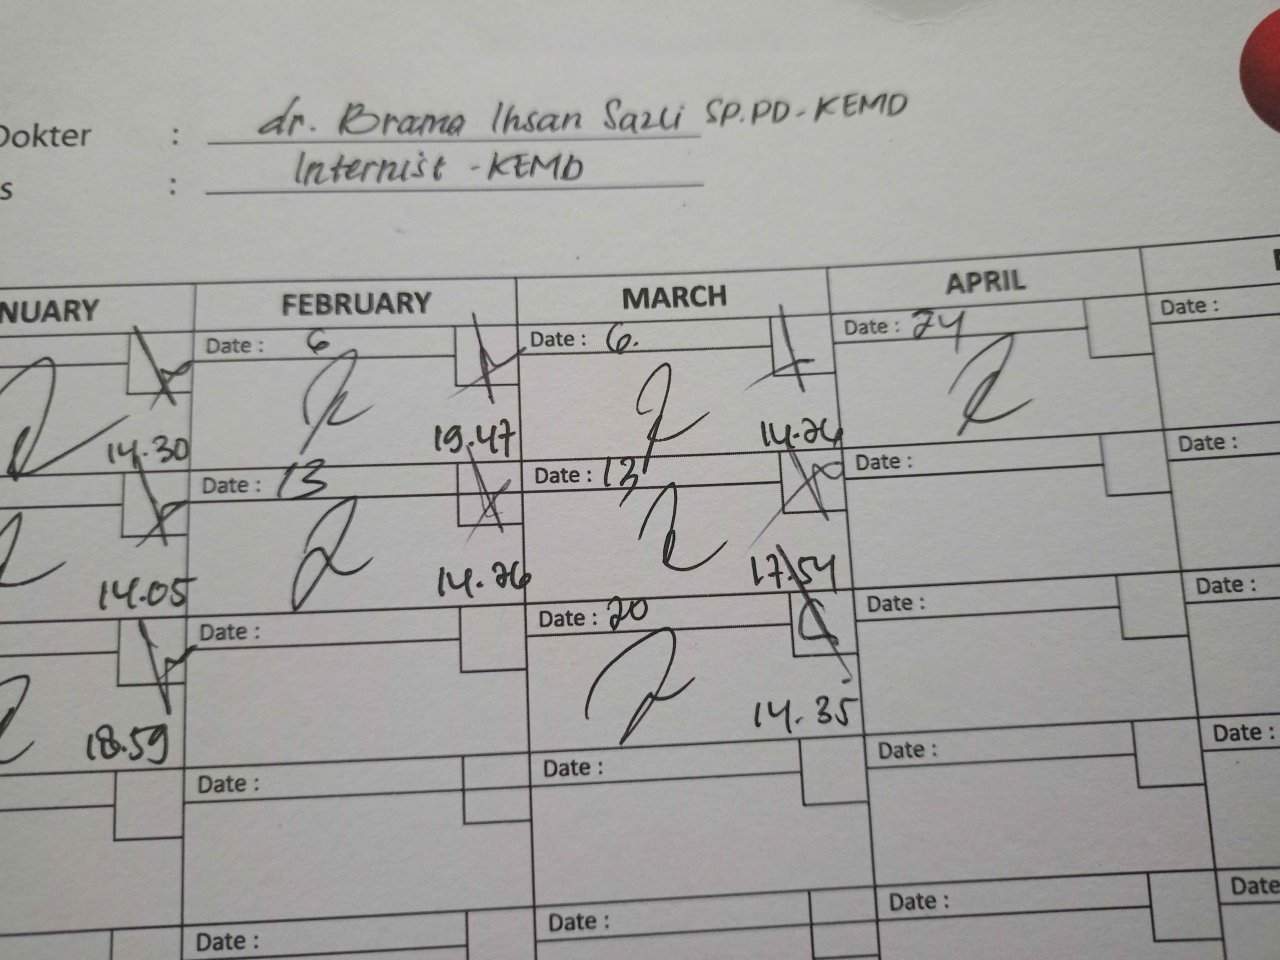 Dokter : dr. Brama Ihsan Sazli SP.PD-KEMD
s : Internist -KEMD
NUARY FEBRUARY MARCH APRIL
Date : 6 Date : 6. Date : 24 Date :
14.30 19.47 14.26
Date : 13 Date : 13 Date : Date :
14.05 14.26 17.54
Date : Date : 20 Date : Date :
18.59 14.35
Date : Date : Date : Date :
Date : Date : Date : Date